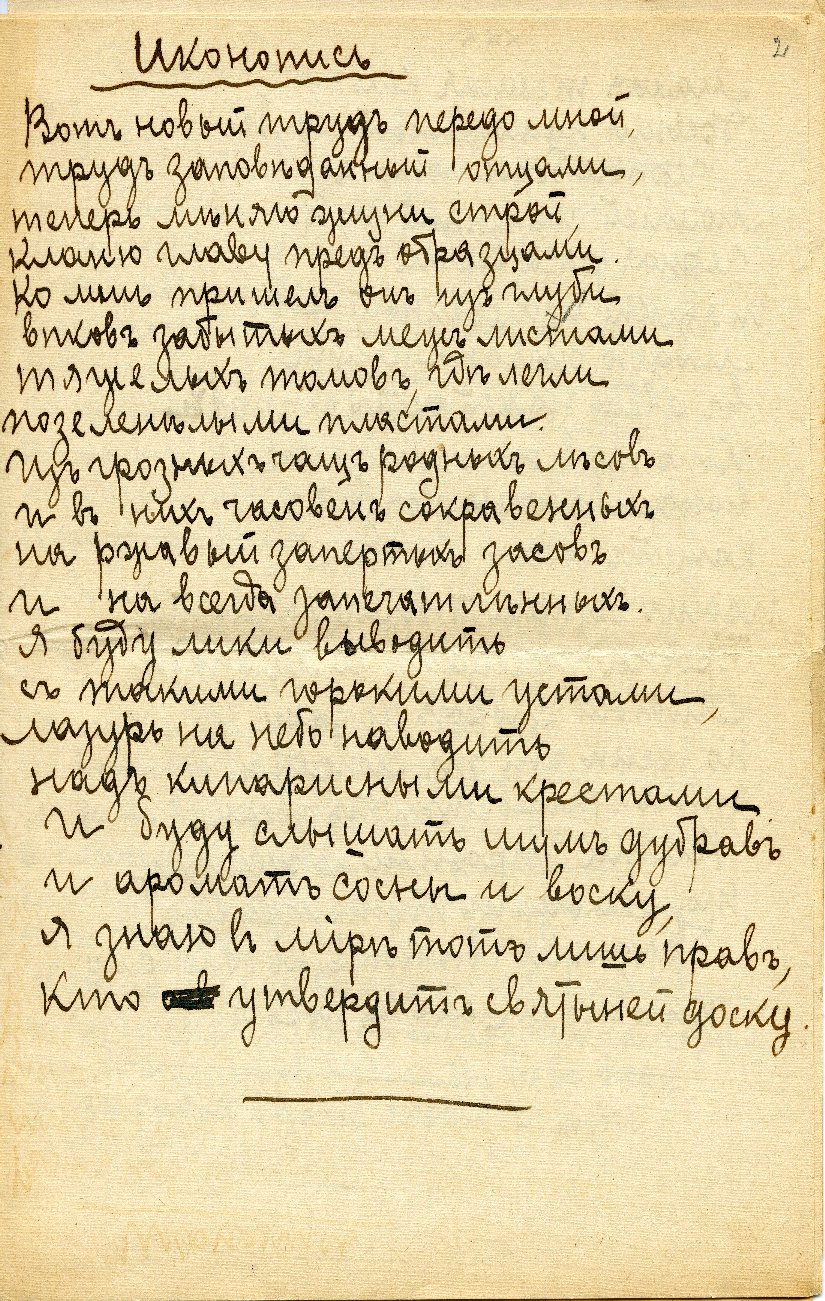 2
Иконопись
Вотъ новый трудъ передо мной,
трудъ заповѣданный отцами,
теперь мѣняю жизни строй,
кланю главу предъ образцами.
Ко мнѣ пришелъ онъ изъ глуби
вѣковъ забытыхъ межъ листами
тяжелыхъ томовъ, гдѣ легли
позеленѣлыми пластами.
Изъ грозныхъ чащъ родныхъ лѣсовъ
и въ нихъ часовенъ сокравенныхъ
на ржавый запертыхъ засовъ
и на всегда запечатлѣнныхъ.
Я буду лики выводить
съ такими горькими устами,
лазурь на небо наводить
надъ кипарисными крестами
И буду слышать шумъ дубравъ
и ароматъ сосны и воску,
я знаю въ мірѣ тотъ лишь правъ,
кто утвердитъ святыней доску.